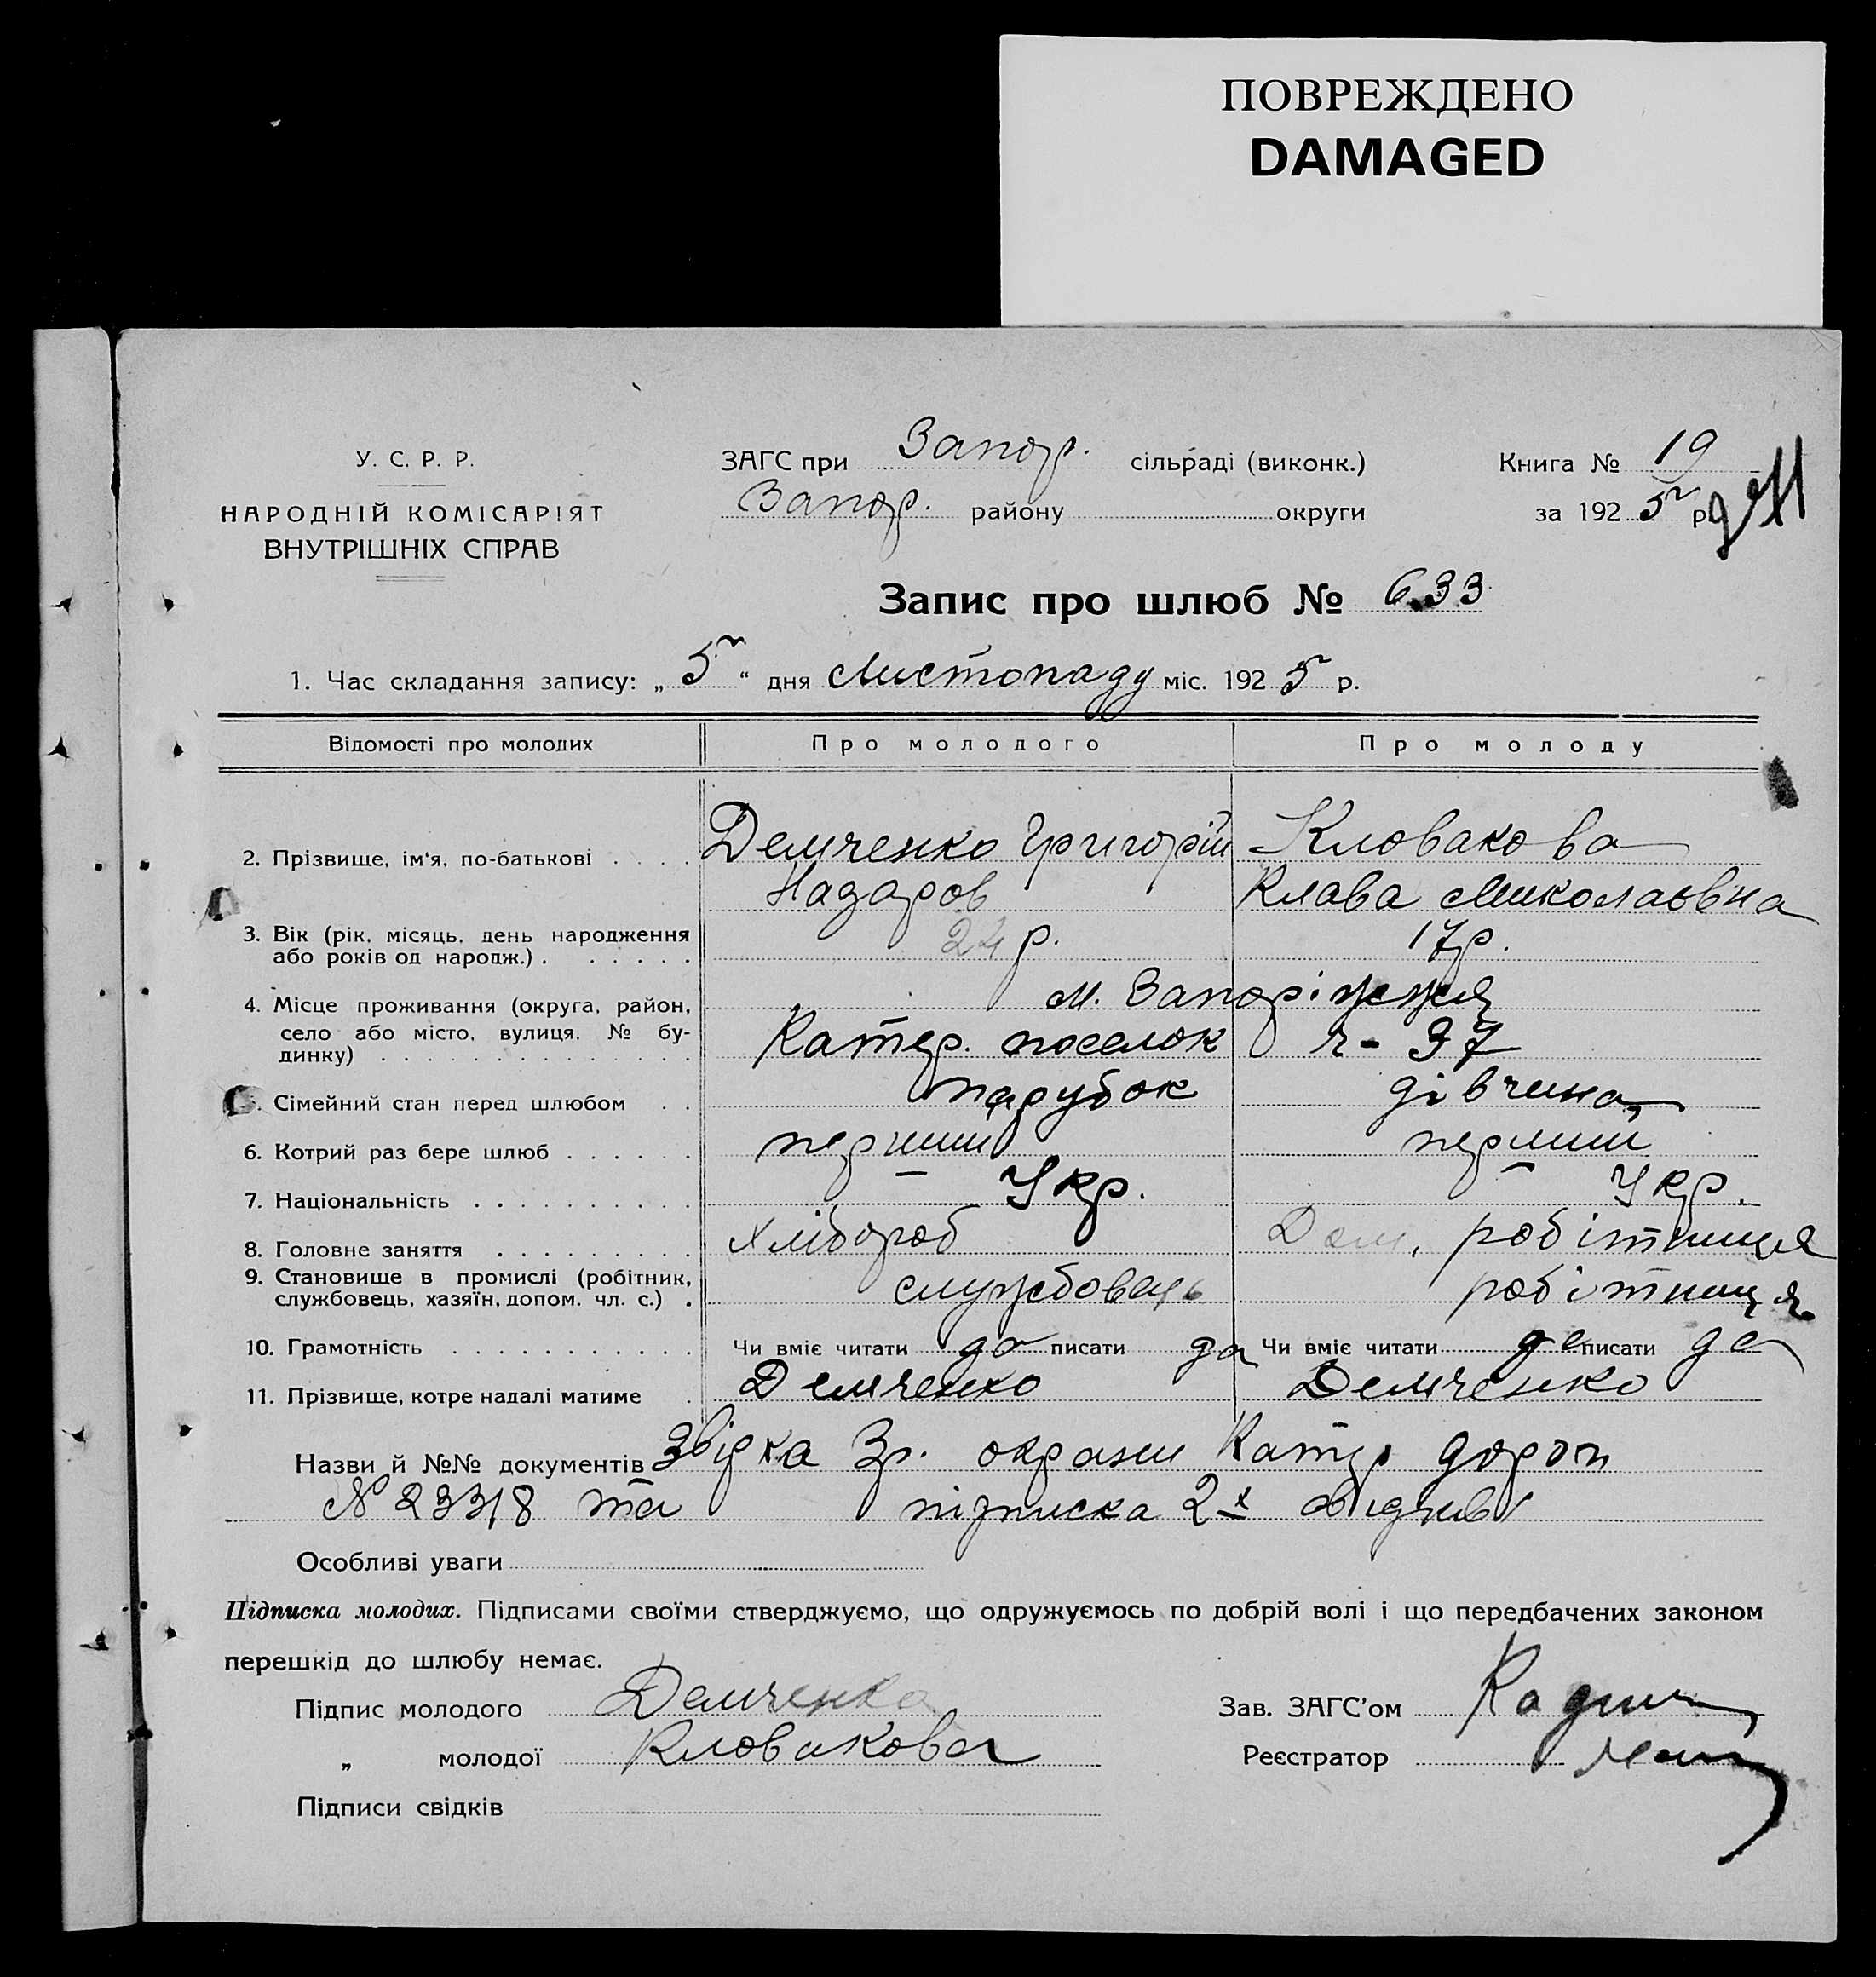 ПОВРЕЖДЕНО
DAMAGED
У. С. Р. Р.
НАРОДНІЙ КОМІСАРІЯТ
ВНУТРІШНІХ СПРАВ
ЗАГС при Запор. сільраді (виконк.)
Запор. району округи
Книга № 19
за 1925 р.
Запис про шлюб № 633
1. Час складання запису: „5“ дня Листопаду міс. 1925 р.
Відомості про молодих Про молодого Про молоду
2. Прізвище, ім'я, по-батькові Демченко Григорій Кловакова
Назаров Клава Миколаевна
3. Вік (рік, місяць, день народження або років од народж.) 24 р. 17 р.
4. Місце проживання (округа, район, село або місто, вулиця, № будинку) м. Запоріжжя
Катер. поселок ч - 97
Сімейний стан перед шлюбом парубок дівчина
6. Котрий раз бере шлюб перший перший
7. Національність Укр. Укр.
8. Головне заняття Хлібороб Дом. робітниця
9. Становище в промислі (робітник, службовець, хазяїн, допом. чл. с.) службовець робітниця
10. Грамотність Чи вміє читати да писати да Чи вміє читати да писати да
11. Прізвище, котре надалі матиме Демченко Демченко
Назви й №№ документів Звідка Зр. охрани Катер дороги
№ 23318 та підписка 2х свідків
Особливі уваги
Підписка молодих. Підписами своїми стверджуємо, що одружуємось по добрій волі і що передбачених законом
перешкід до шлюбу немає.
Підпис молодого Демченко
„ молодої Кловакова
Підписи свідків
Зав. ЗАГС'ом
Реєстратор